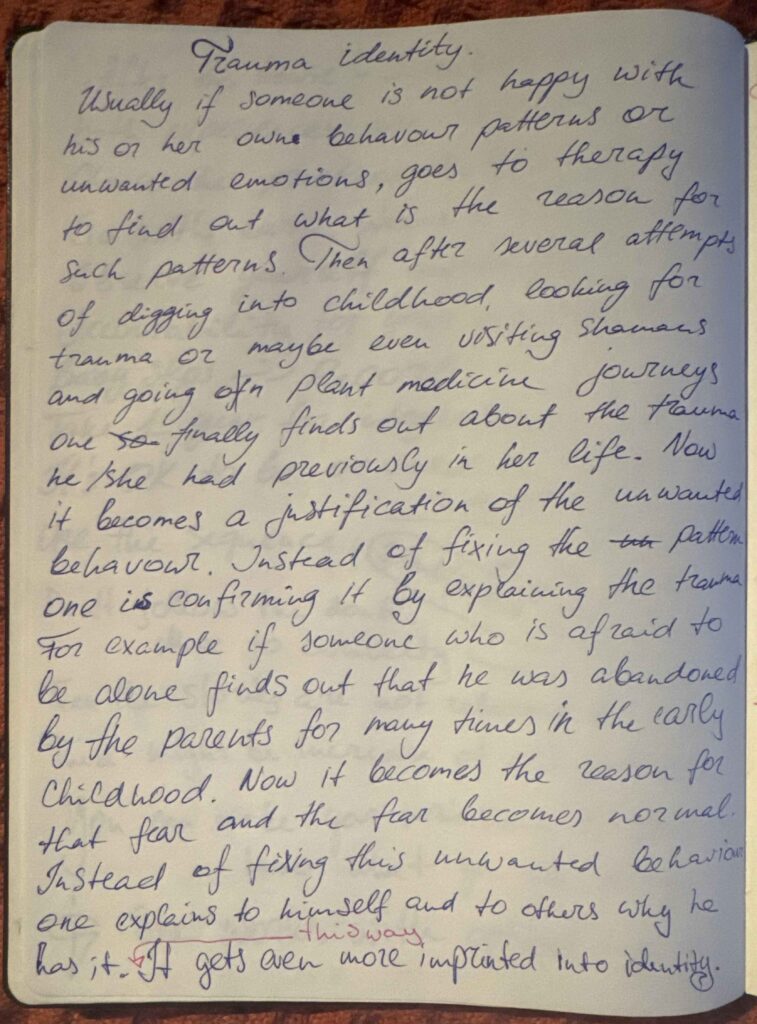 Trauma identity.
Usually if someone is not happy with
his or her own behavour patterns or
unwanted emotions, goes to therapy
to find out what is the reason for
such patterns. Then after several attempts
of digging into childhood, looking for
trauma or maybe even visiting shamans
and going on plant medicine journeys
one so finally finds out about the trauma
he/she had previously in her life. Now
it becomes a justification of the unwanted
behavour. Instead of fixing the un pattern
one is confirming it by explaining the trauma
For example if someone who is afraid to
be alone finds out that he was abandoned
by the parents for many times in the early
childhood. Now it becomes the reason for
that fear and the fear becomes normal.
Instead of fixing this unwanted behaviour
one explains to himself and to others why he
this way
has it. It gets even more imprinted into identity.